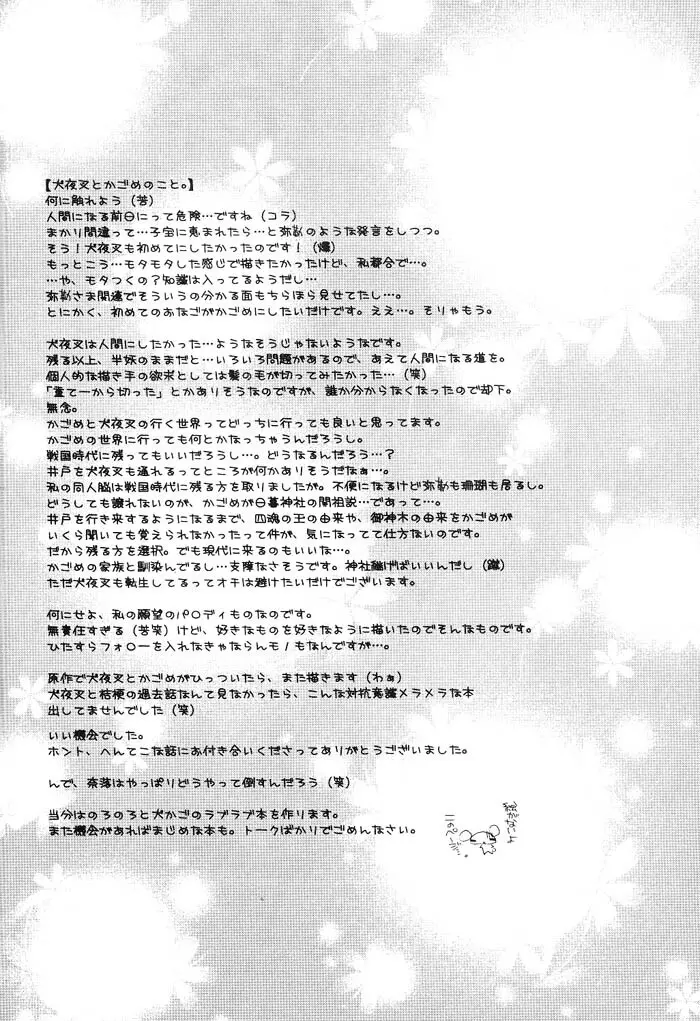 【犬夜叉とかごめのこと。】
何に触れよう（苦）
人間になる前日にって危険…ですね（コラ）
まかり間違って…子宝に恵まれたら…と弥勒のような発言をしつつ。
そう！犬夜叉も初めてにしたかったのです！（爆）
もっとこう…モタモタした感じで描きたかったけど、私都合で…。
…や、モタつくの？知識は入ってるようだし…
弥勒さま間違でそういうの分かる面もちらほら見せてたし…。
とにかく、初めてのおなごがかごめにしたいだけです。ええ…。そりゃもう。
犬夜叉は人間にしたかった…ようなそうじゃないようなです。
残る以上、半妖のままだと…いろいろ問題があるので、あえて人間になる道を。
個人的な描き手の欲求としては髪の毛が切ってみたかった…（笑）
「重て一から切った」とかありそうなのですが、誰か分からなくなったので却下。
無念。
かごめと犬夜叉の行く世界ってどっちに行っても良いと思ってます。
かごめの世界に行っても何とかなっちゃうんだろうし。
戦国時代に残ってもいいだろうし…。どうなるんだろう…？
井戸を犬夜叉も通れるってところが何かありそうだなぁ…。
私の同人脳は戦国時代に残る方を取りましたが。不便になるけど弥勒も珊瑚も居るし。
どうしても譲れないのが、かごめが日暮神社の開祖説…であって…。
井戸を行き来するようになるまで、四魂の玉の由来や、御神木の由来をかごめが
いくら聞いても覚えられなかったって件が、気になってて仕方ないのです。
だから残る方を選択。でも現代に来るのもいいな…。
かごめの家族と馴染んでるし…支障なさそうです。神社継げばいいんだし（蹴）
ただ犬夜叉も転生してるってオチは避けたいだけでございます。
何にせよ、私の願望のパロディものなのです。
無責任すぎる（苦笑）けど、好きなものを好きなように描いたのでそんなものです。
ひたすらフォローを入れなきゃならんモノもなんですが…。
原作で犬夜叉とかごめがひっついたら、また描きます（わぁ）
犬夜叉と桔梗の過去話なんて見なかったら、こんな対抗意識メラメラな本
出してませんでした（笑）
いい機会でした。
ホント、へんてこな話にお付き合いくださってありがとうございました。
んで、奈落はやっぱりどうやって倒すんだろう（笑）
当分はのろのろと犬かごのラブラブ本を作ります。
また機会があればまじめな本も。トークばかりでごめんなさい。